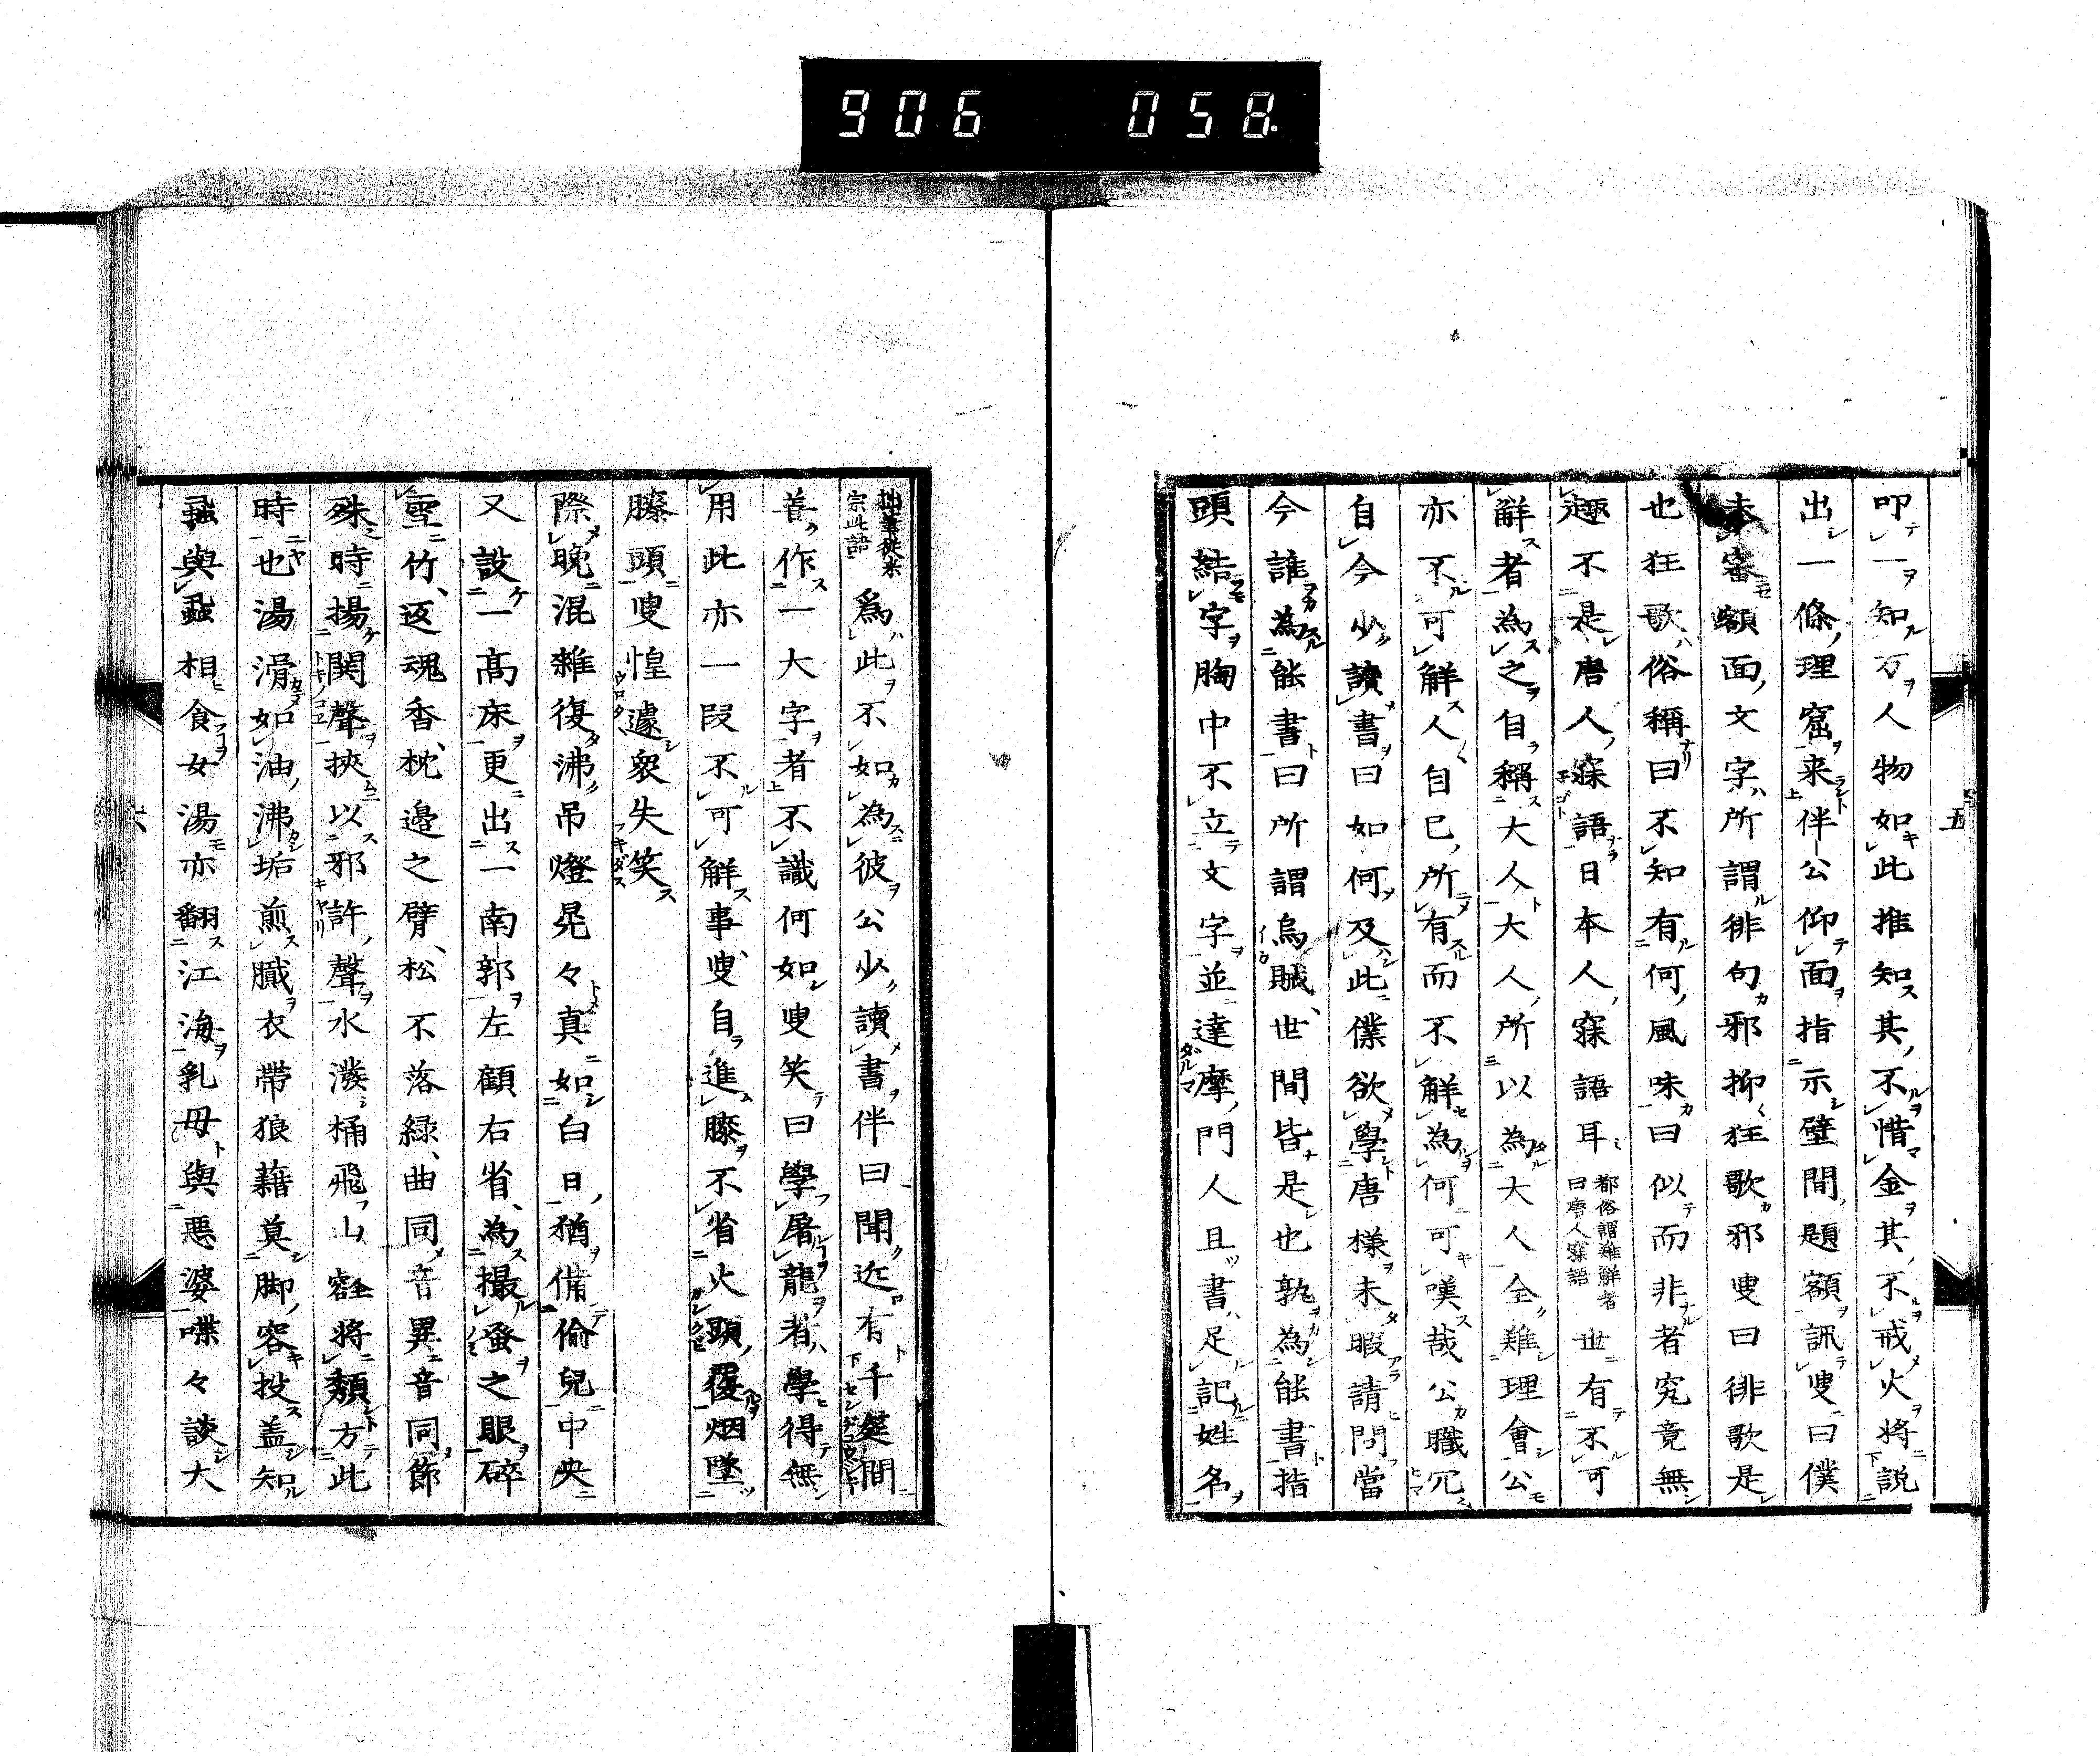 906 058
五
叩一知万人物如此推知其不惜金其不戒火將説
出一條理窟来伴公仰面指示壁間題額訊叟曰僕
未審額面文字所謂徘句邪抑狂歌邪叟曰徘歌是
也狂歌俗稱曰不知有何風味曰似而非者究竟無
趣不是唐人寐語日本人寐語耳都俗謂難解者曰唐人寐語世有不可
解者為之自稱大人大人所以為大人全難理會公
亦不可解人自已所有而不解為何可嘆哉公職冗
自今少讀書曰如何及此僕欲學唐樣未暇請問當
今誰為能書曰所謂烏賊世間皆是也孰為能書指
頭結字胸中不立文字並達摩門人且書足記姓名
拙筆從来宗此語為此不如為彼公少讀書伴曰聞近有千筵間
善作一大字者不識何如叟笑曰學屠龍者學得無
用此亦一段不可解事叟自進膝不省火頭覆烟墜
膝頭叟惶遽衆失笑
際晚混雜復沸吊燈晃々真如白日猶備偷兒中央
又設一高床更出一南郭左顧右省為撮蚤之眼碎
雪竹返魂香枕邉之臂松不落緑曲同音異音同節
殊時揚関聲挾以邪許聲水潑桶飛山壑將頽方此
時也湯滑如油沸垢煎膩衣帶狼藉莫脚容投盖知
蝨與蝨相食女湯亦翻江海乳母與惡婆喋々談大
六